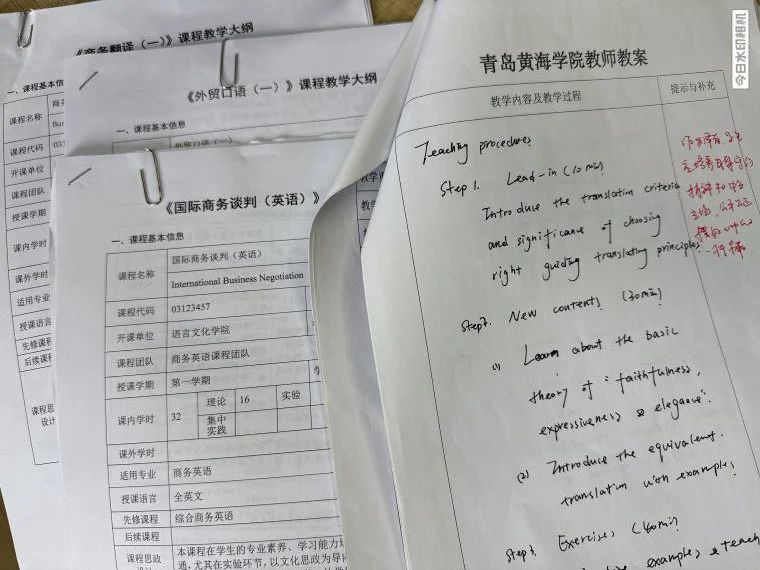 《商务翻译（一）》课程教学大纲
一、课程基本信息
课程名称
课程代码 031
开课单位
课程团队
授课学期
课内学时
课外学时
适用专业
授课语言
先修课程
后续课程
《外贸口语（一）》课程教学大纲
一、课程基本信息
外贸口语（一）
《国际商务谈判（英语）》
一、课程基本信息
课程名称 国际商务谈判（英语）
International Business Negotiation
课程代码 03123457
开课单位 语言文化学院
课程团队 商务英语课程团队
授课学期 第一学期
课内学时 32 理论 16 实验
集中
实践
课外学时
适用专业 商务英语
授课语言 全英文
先修课程 综合商务英语
后续课程
课程思政 本课程在学生的专业素养、学习能力
通，尤其在实验环节，以文化思政为导向
青岛黄海学院教师教案
教学内容及教学过程 提示与补充
Teaching procedures
Step 1. Lead-in (10 min)
Introduce the translation criteria
and significance of choosing
right guiding translating principles.
Step 2. New contents (30 min)
(1) Learn about the basic
theory of "faithfulness,
expressiveness & elegance".
(2) Introduce the equivalent
translation with examples
Step 3. Exercises (40 min)
examples & teach
今日水印相机